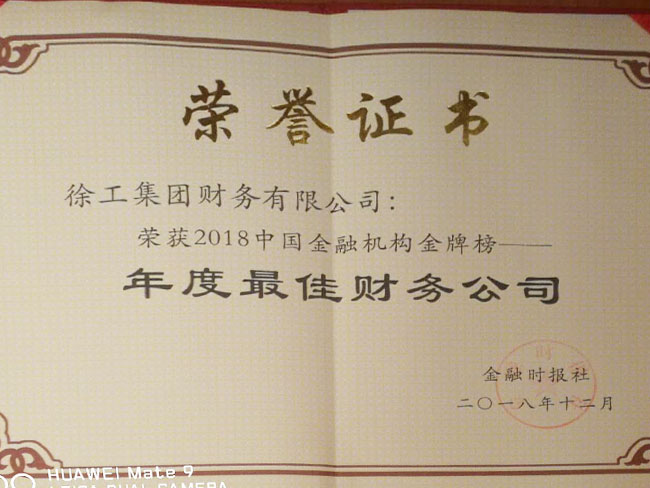 荣誉证书
徐工集团财务有限公司：
荣获2018中国金融机构金牌榜——
年度最佳财务公司
金融时报社
二〇一八年十二月
HUAWEI Mate 9
LEICA DUAL CAMERA